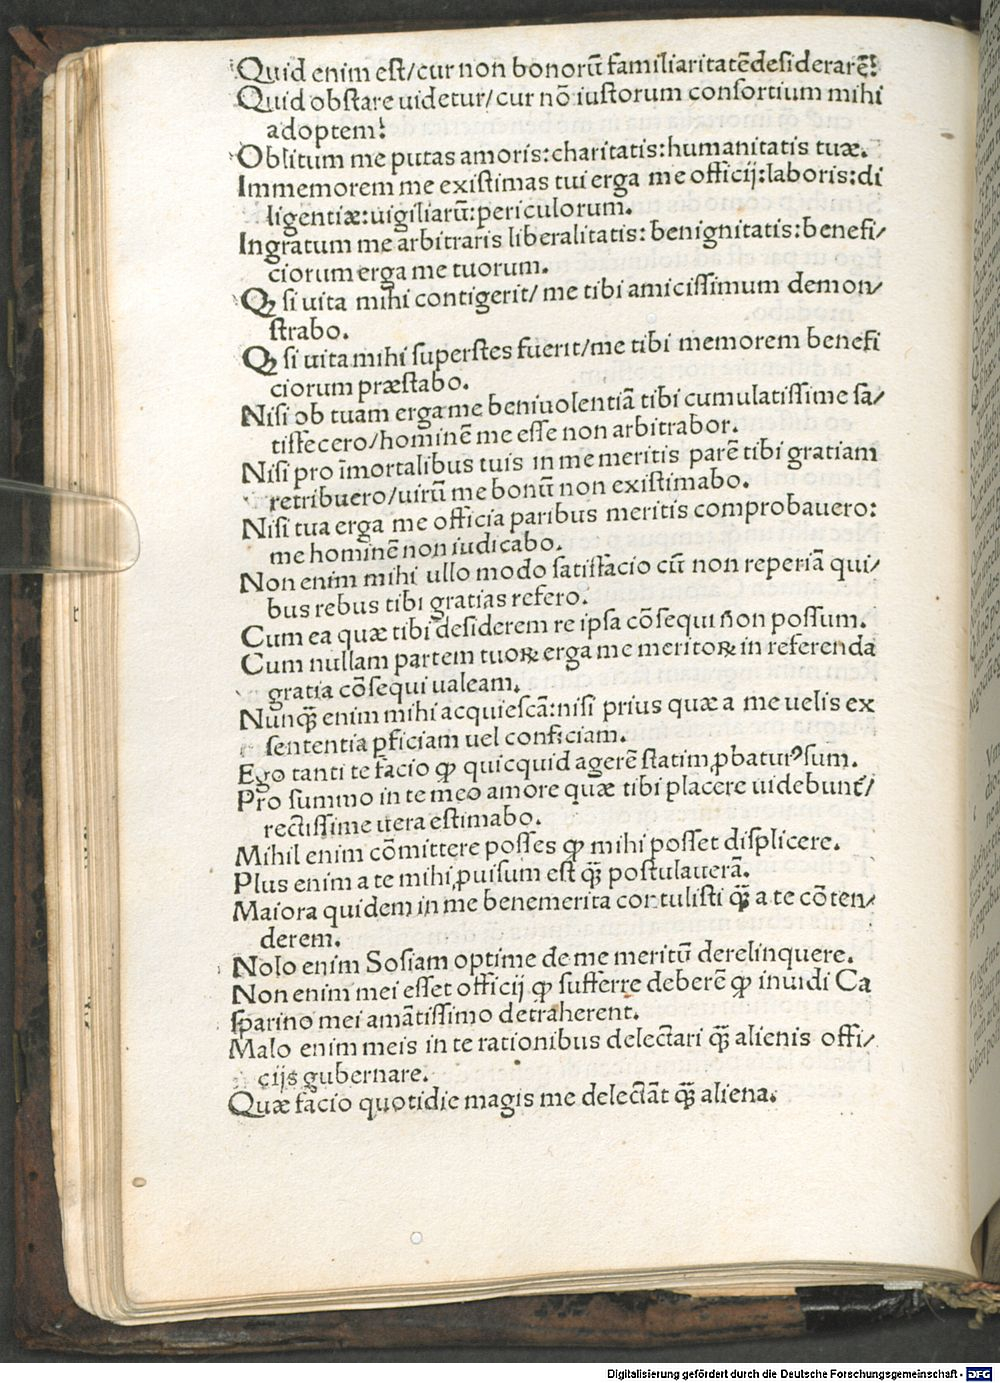 Quid enim est/cur non bonorū familiaritatēdesiderarē?
Quid obstare uidetur/cur nō iustorum consortium mihi
adoptem?
Oblitum me putas amoris:charitatis:humanitatis tuæ.
Immemorem me existimas tui erga me officij:laboris:di
ligentiæ:uigiliarū:periculorum.
Ingratum me arbitraris liberalitatis: benignitatis:benefi/
ciorum erga me tuorum.
Qꝫ si uita mihi contigerit/ me tibi amicissimum demon/
strabo.
Qꝫ si uita mihi superstes fuerit/me tibi memorem benefi
ciorum præstabo.
Nisi ob tuam erga me beniuolentiā tibi cumulatissime sa/
tisfecero/hominē me esse non arbitrabor.
Nisi pro īmortalibus tuis in me meritis parē tibi gratiam
retribuero/uirū me bonū non existimabo.
Nisi tua erga me officia paribus meritis comprobauero:
me hominē non iudicabo.
Non enim mihi ullo modo satisfacio cū non reperiā qui/
bus rebus tibi gratias refero.
Cum ea quæ tibi desiderem re ipsa cōsequi ñon possum.
Cum nullam partem tuoꝝ erga me meritoꝝ in referenda
gratia cōsequi ualeam.
Nunqꝫ̄ enim mihi acquiescā:nisi prius quæ a me uelis ex
sententia ꝑficiam uel conficiam.
Ego tanti te facio ꝙ quicquid agerē statim ꝓbaturꝰ sum.
Pro summo in te meo amore quæ tibi placere uidebunt̄/
rectissime uera estimabo.
Mihil enim cōmittere posses ꝙ mihi posset displicere.
Plus enim a te mihi ꝓuisum est qꝫ̄ postulauerā.
Maiora quidem in me benemerita contulisti qꝫ̄ a te cōten/
derem.
Nolo enim Sosiam optime de me meritū derelinquere.
Non enim mei esset officij ꝙ sufferre deberē ꝙ inuidi Ca
sparino mei amātissimo detraherent.
Malo enim meis in te rationibus delectari qꝫ̄ alienis offi/
cijs gubernare.
Quæ facio quotidie magis me delectāt qꝫ̄ aliena.
Digitalisierung gefördert durch die Deutsche Forschungsgemeinschaft - DFG